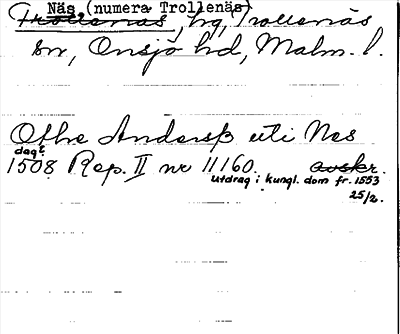 Näs (numera Trollenäs)
Trollenäs, hg, Trollenäs
sn, Onsjö hd, Malm. l.
Othe Anderss uti Nes
dagt
1508 Rep. II nr 11160. avskr.
utdrag i kungl. dom fr. 1553
25/2.